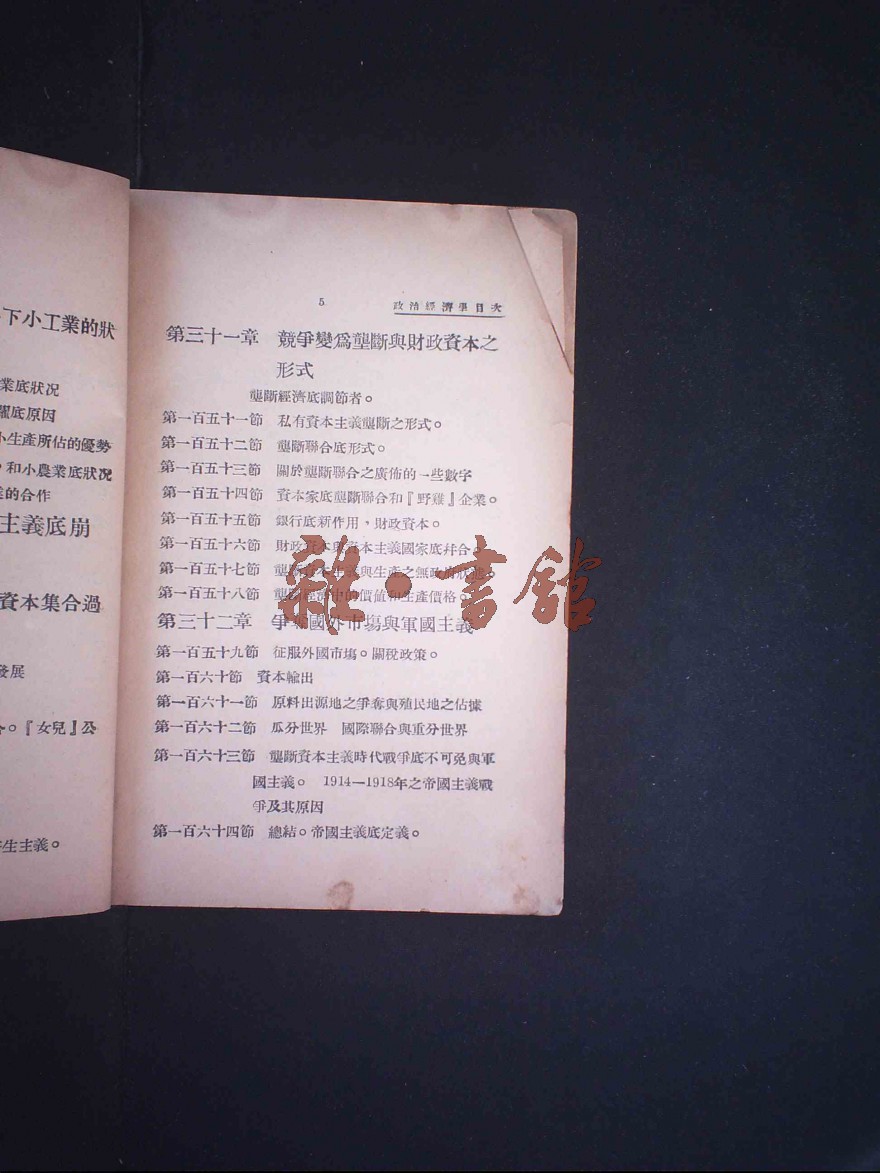 下小工業的狀
業底狀况
底原因
小生產所佔的優勢
和小農業底狀況
業的合作
主義底崩
資本集合過
發展
。『女兒』公
生主義。
5 政治經濟學目次
第三十一章 競爭變爲壟斷與財政資本之
形式
壟斷經濟底調節者。
第一百五十一節 私有資本主義壟斷之形式。
第一百五十二節 壟斷聯合底形式。
第一百五十三節 關於壟斷聯合之廣佈的一些數字
第一百五十四節 資本家底壟斷聯合和『野雞』企業。
第一百五十五節 銀行底新作用,財政資本。
第一百五十六節 財政資本與資本主義國家底幷合。
第一百五十七節 壟斷資本主義與生產之無政府狀態。
第一百五十八節 壟斷經濟中的價值和生產價格。
第三十二章 爭奪國外市場與軍國主義
第一百五十九節 征服外國市塲。關稅政策。
第一百六十節 資本輸出
第一百六十一節 原料出源地之爭奪與殖民地之佔據
第一百六十二節 瓜分世界 國際聯合與重分世界
第一百六十三節 壟斷資本主義時代戰爭底不可免與軍
國主義。 1914—1918年之帝國主義戰
爭及其原因
第一百六十四節 總結。帝國主義底定義。
雜·書舘